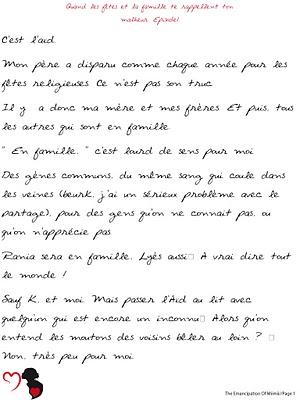 Quand les fêtes et la famille te rappellent ton
malheur. Episode1
C'est l'aïd.
Mon père a disparu comme chaque année pour les
fêtes religieuses. Ce n'est pas son truc.
Il y a donc ma mère et mes frères. Et puis, tous
les autres qui sont en famille.
" En famille, " c'est lourd de sens pour moi.
Des gènes communs, du même sang qui coule dans
les veines (beurk, j'ai un sérieux problème avec le
partage), pour des gens qu'on ne connait pas, ou
qu'on n'apprécie pas.
Rania sera en famille. Lyès aussi□ A vrai dire tout
le monde !
Sauf K. et moi. Mais passer l'Aïd au lit avec
quelqu'un qui est encore un inconnu□ Alors qu'on
entend les moutons des voisins bêler au loin ? □
Non, très peu pour moi.
The Emancipation Of Mimia | Page 1